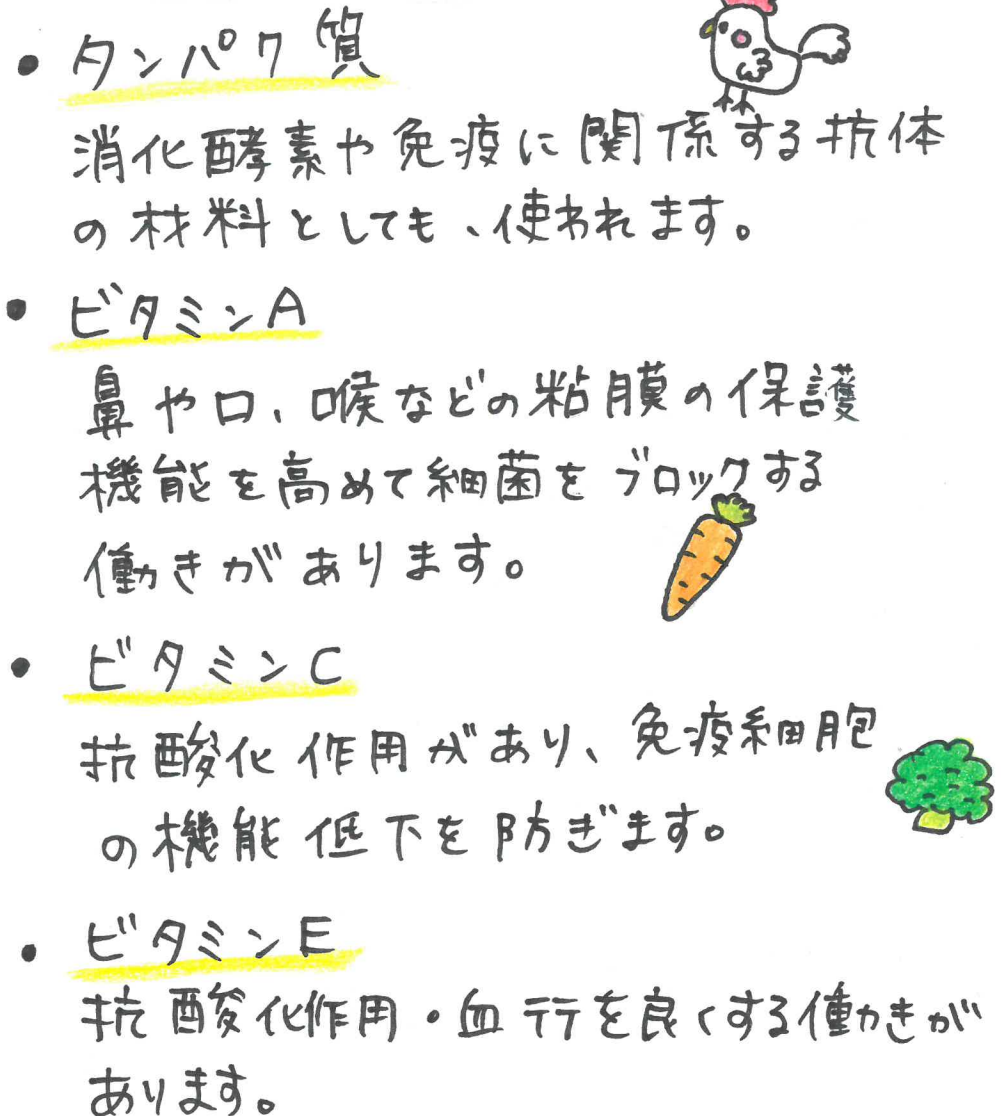 ・タンパク質
消化酵素や免疫に関係する抗体
の材料としても、使われます。
・ビタミンA
鼻や口、喉などの粘膜の保護
機能を高めて細菌をブロックする
働きがあります。
・ビタミンC
抗酸化作用があり、免疫細胞
の機能低下を防ぎます。
・ビタミンE
抗酸化作用・血行を良くする働きが
あります。